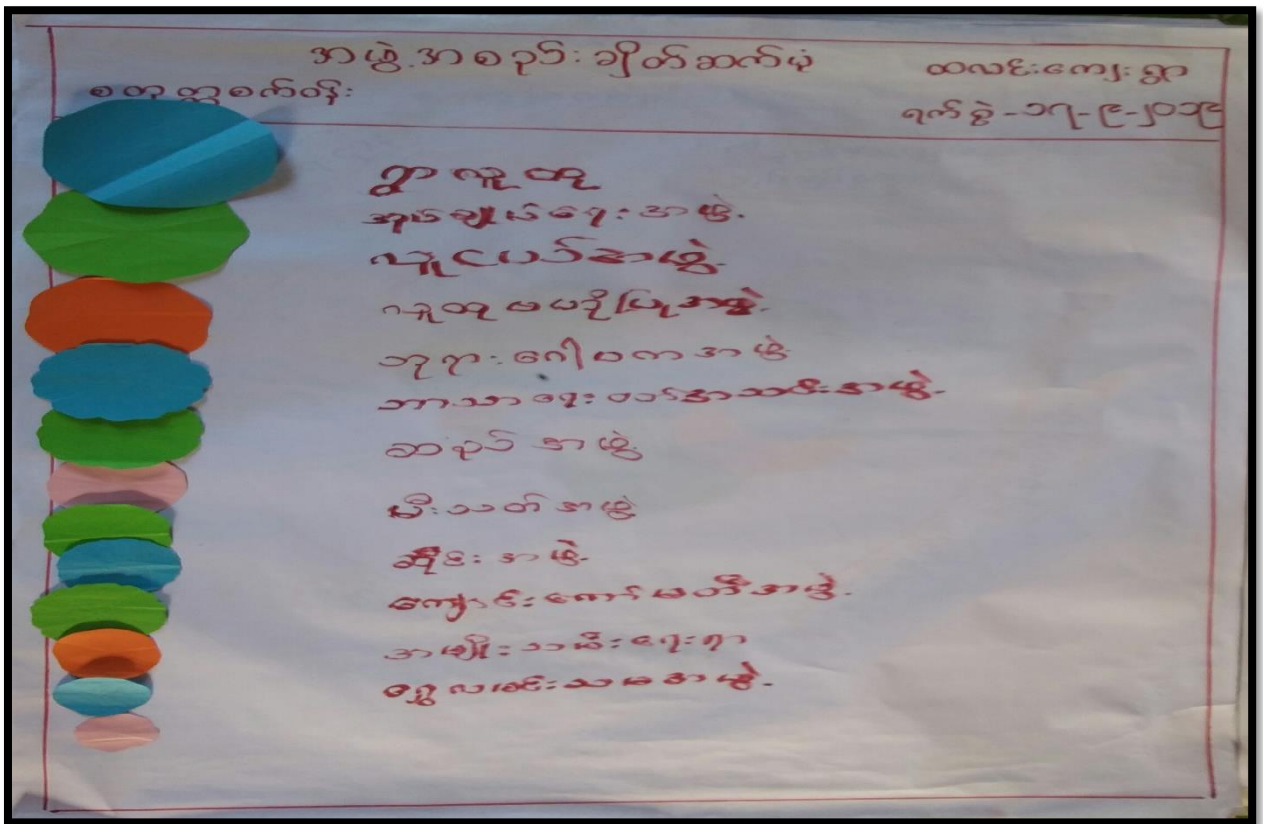 အဖွဲ့အစည်းချိတ်ဆက်ပုံ
ထလင်းကျေးရွာ
စတုတ္ထစက်ဝန်း
ရက်စွဲ-၁၇-၉-၂၀၁၉
ရွာလူထု
အုပ်ချုပ်ရေးအဖွဲ့
လူငယ်အဖွဲ့
လူထုဗဟိုပြုအဖွဲ့
ဘုရားဂေါပကအဖွဲ့
ဘာသာရေးဝတ်အသင်းအဖွဲ့
ဆည်အဖွဲ့
မီးသတ်အဖွဲ့
ဆိုင်းအဖွဲ့
ကျောင်းကော်မတီအဖွဲ့
အမျိုးသမီးရေးရာ
ရွှေလမင်းသမအဖွဲ့